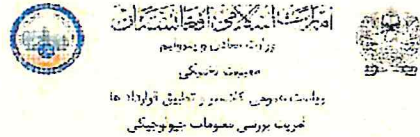 امارت اسلامی افغانستان
وزارت معادن و پترولیم
معینیت تخنیکی
ریاست عمومی کادستر و تطبیق قرارداد ها
آمریت بررسی معلومات جیولوجیکی